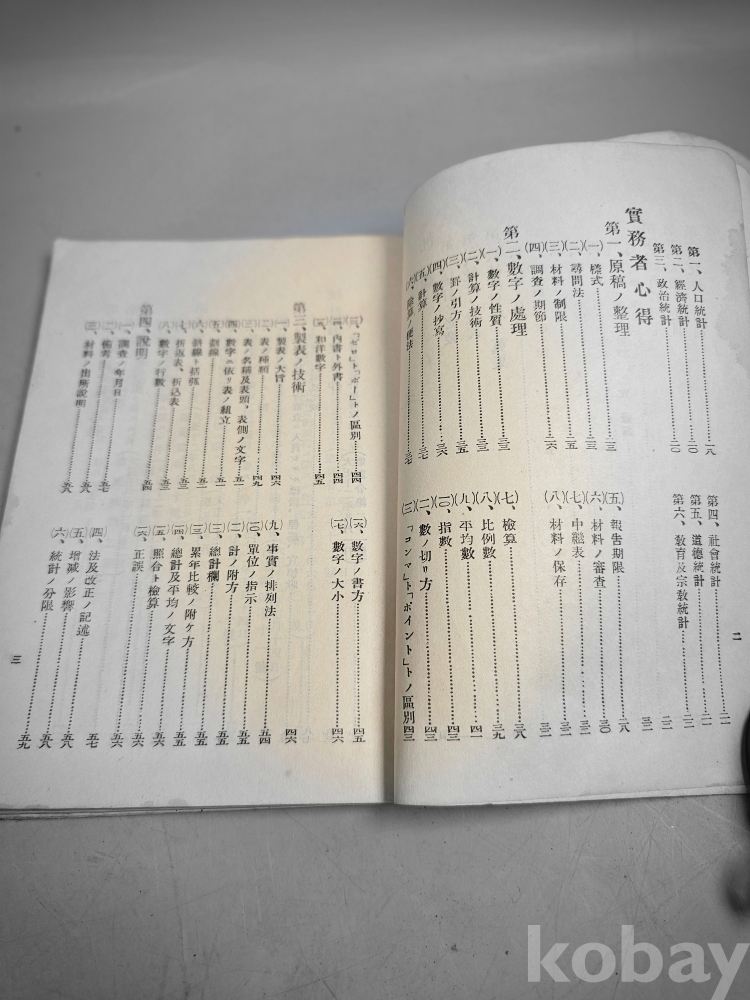 第一、人口統計……一八
第二、經濟統計……二〇
第三、政治統計……二〇
第四、社會統計……二一
第五、道德統計……二一
第六、教育及宗教統計……二二
實務者心得
第一、原稿ノ整理……二三
(一)、樣式……二三
(二)、尋問法……二五
(三)、材料ノ制限
(四)、調査ノ期節……二六
(五)、報告期限……二八
(六)、材料ノ審査……三〇
(七)、中繼表……三一
(八)、材料ノ保存……三二
第二、數字ノ處理
(一)、數字ノ性質……三三
(二)、計算ノ技術……三三
(三)、罫ノ引方……三五
(四)、數字ノ抄寫……三六
(五)、計算
(六)、除算ノ便法……三七
(七)、檢算……三八
(八)、比例數……三九
(九)、平均數……四一
(一〇)、指數……四三
(一一)、數ノ切リ方……四三
(一二)、「コンマ」ト「ポイント」トノ區別……四三
二
(一三)、「ゼロ」ト「ボー」トノ區別……四四
(一四)、內書ト外書……四四
(一五)、和洋數字……四五
(一六)、數字ノ書方……四五
(一七)、數字ノ大小……四六
第三、製表ノ技術……四六
(一)、製表ノ大旨
(二)、表ノ種類……四九
(三)、表ノ名稱及表頭、表側ノ文字……五一
(四)、數字ニ依リ表ノ組立
(五)、割線……五一
(六)、斜線ト括弧
(七)、折返表、折込表
(八)、數字ノ行數
(九)、事實ノ排列法……五四
(一〇)、單位ノ指示……五四
(一一)、計ノ附方……五五
(一二)、總計欄……五五
(一三)、累年比較ノ附ケ方……五五
(一四)、總計及平均ノ文字……五五
(一五)、照合ト檢算……五六
(一六)、正誤……五六
第四、說明……五四
(一)、調査ノ年月日
(二)、備考……五七
(三)、材料ノ出所說明……五八
(四)、法及改正ノ記述……五七
(五)、增減ノ影響……五八
(六)、統計ノ分限……五九
三
kobay